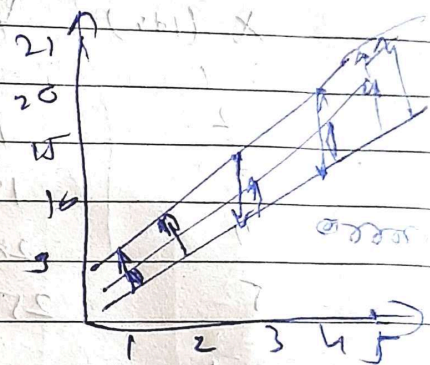 21
20
15
10
3
1 2 3 4 5